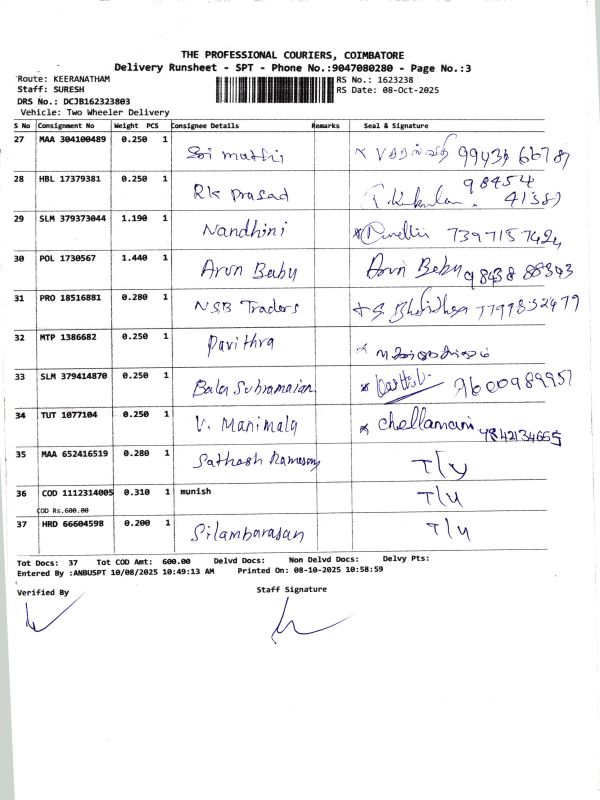 THE PROFESSIONAL COURIERS, COIMBATORE
Delivery Runsheet - SPT - Phone No.:9047080280 - Page No.:3
Route: KEERANATHAM RS No.: 1623238
Staff: SURESH RS Date: 08-Oct-2025
DRS No.: DCJB162323803
Vehicle: Two Wheeler Delivery
S No Consignment No Weight PCS Consignee Details Remarks Seal & Signature
27 MAA 304100489 0.250 1 Sri mathi
28 HBL 17379381 0.250 1 RK Prasad 98454 41389
29 SLM 379373044 1.190 1 Nandhini 7397157424
30 POL 1730567 1.440 1 Arun Babu 98438 88343
31 PRO 18516881 0.280 1 NSB Traders 7799852479
32 MTP 1386682 0.250 1 Pavithra
33 SLM 379414870 0.250 1 Bala Subramaian 9600989957
34 TUT 1077104 0.250 1 V. Manimala chellamani 9842134665
35 MAA 652416519 0.280 1 Sathash T/y
36 COD 1112314005 0.310 1 munish T/y
COD Rs.600.00
37 HRD 66604598 0.200 1 Silambarasan T/y
Tot Docs: 37 Tot COD Amt: 600.00 Delvd Docs: Non Delvd Docs: Delvy Pts:
Entered By :ANBUSPT 10/08/2025 10:49:13 AM Printed On: 08-10-2025 10:58:59
Verified By Staff Signature